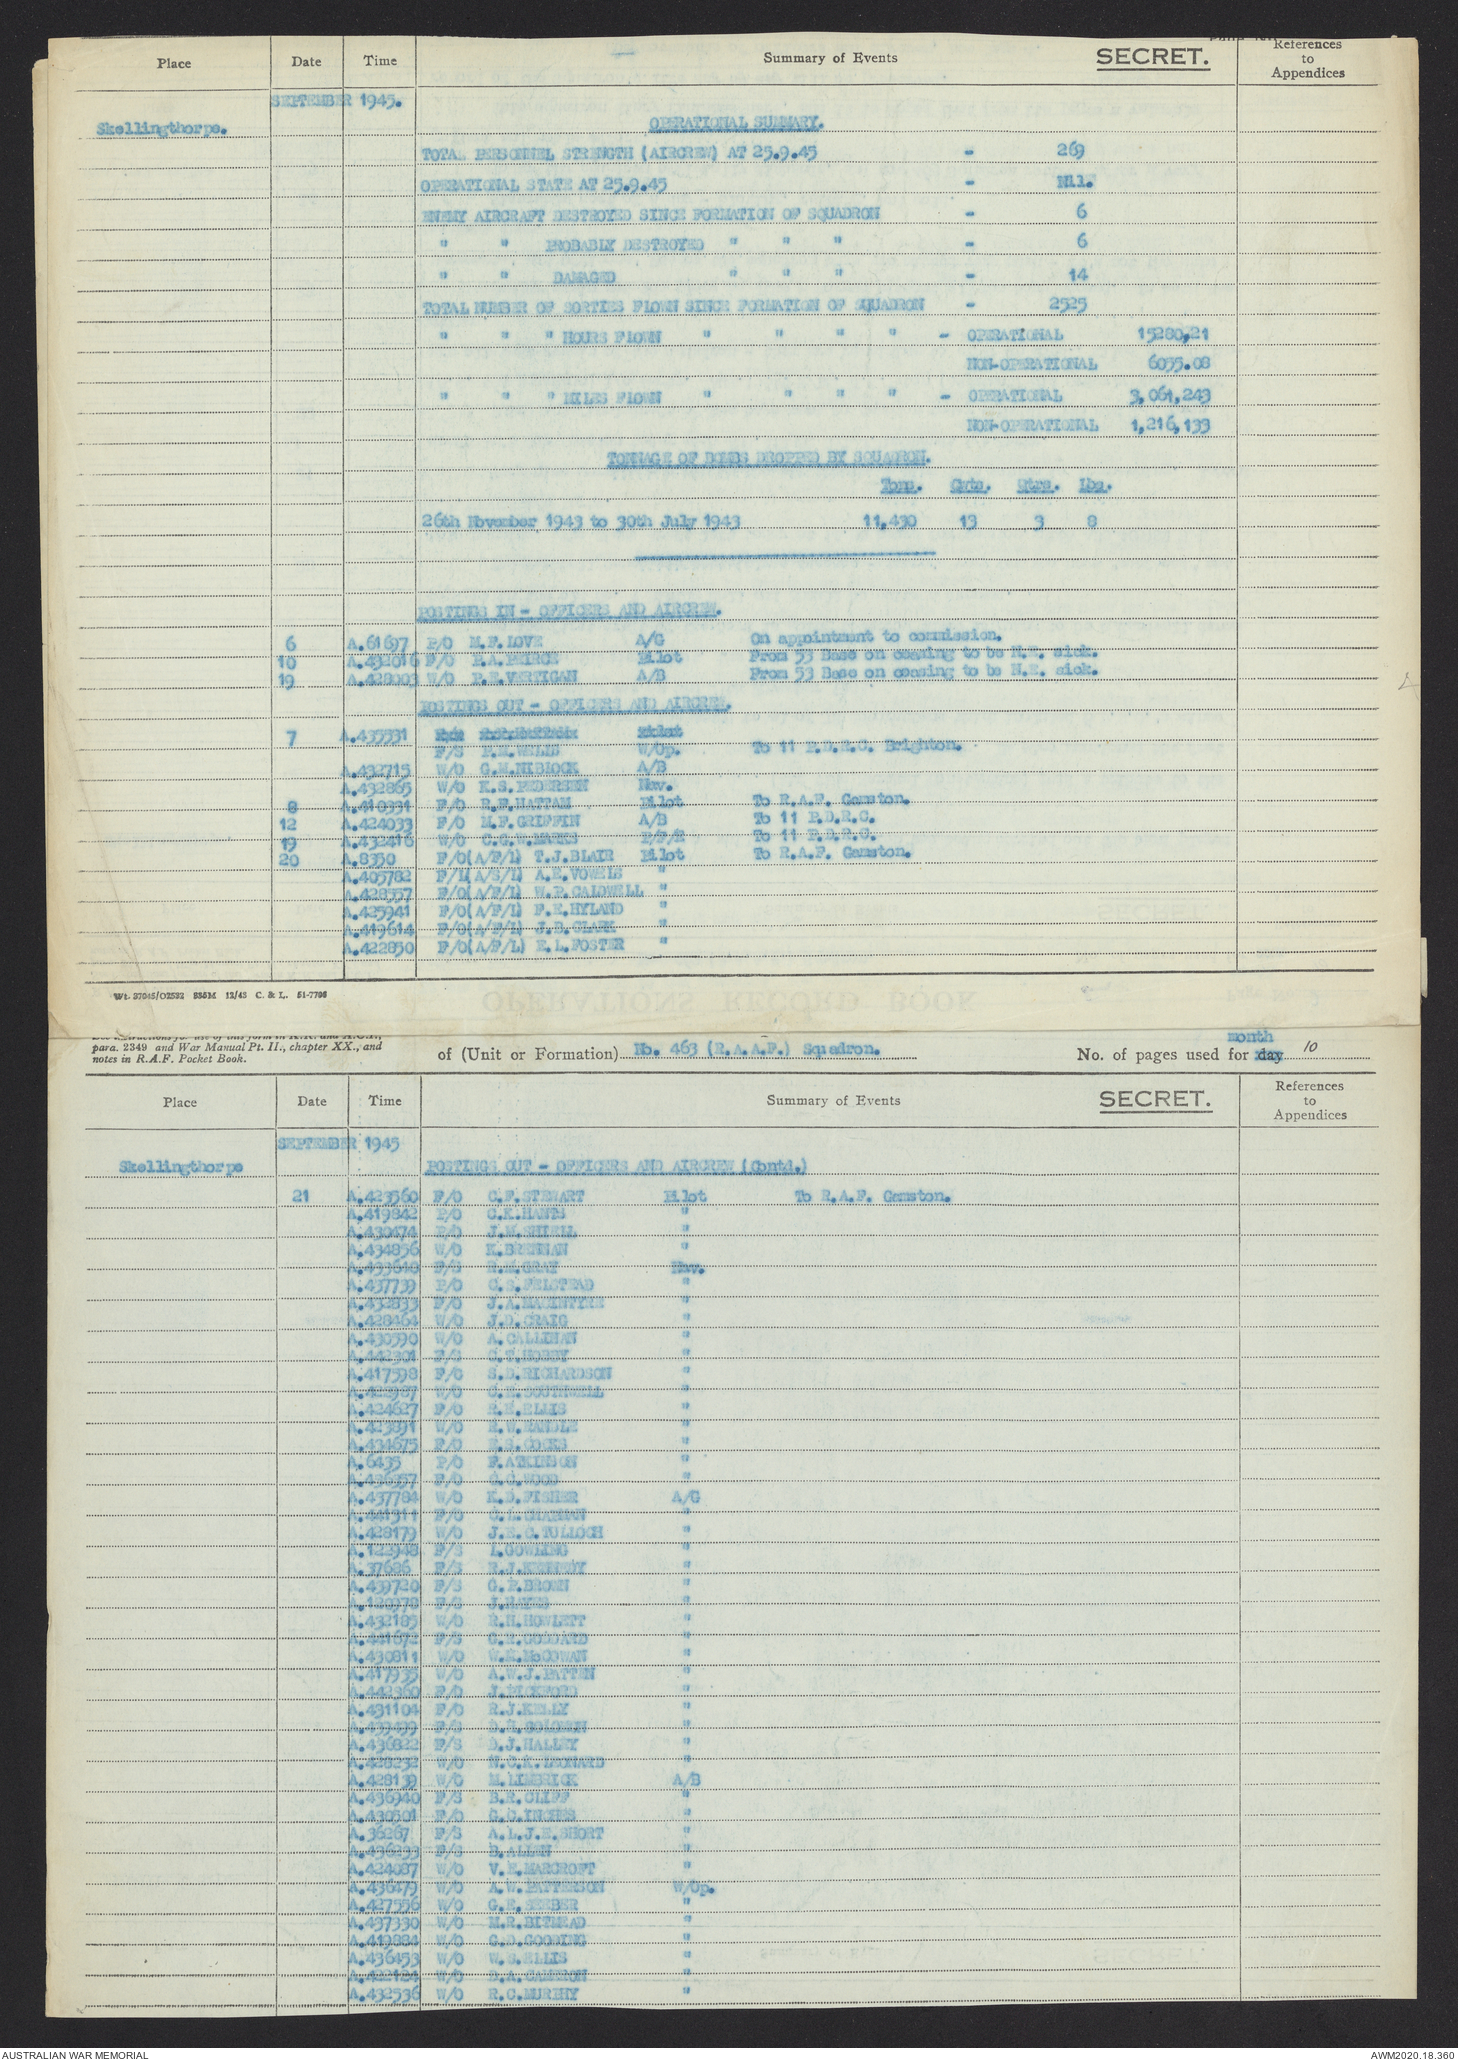 Place Date Time Summary of Events SECRET. References to Appendices
SEPTEMBER 1945.
Skellingthorpe.
OPERATIONAL SUMMARY.
TOTAL PERSONNEL STRENGTH (AIRCREW) AT 25.9.45 - 269
OPERATIONAL STATE AT 25.9.45 - Nil.
ENEMY AIRCRAFT DESTROYED SINCE FORMATION OF SQUADRON - 6
" " PROBABLY DESTROYED " " " - 6
" " DAMAGED " " " - 14
TOTAL NUMBER OF SORTIES FLOWN SINCE FORMATION OF SQUADRON - 2525
" " " HOURS FLOWN " " " " - OPERATIONAL 15280,21
NON-OPERATIONAL 6055.08
" " " MILES FLOWN " " " " - OPERATIONAL 3,061,243
NON-OPERATIONAL 1,216,133
TONNAGE OF BOMBS DROPPED BY SQUADRON.
Tons. Cwts. Qtrs. Lbs.
26th November 1943 to 30th July 1943 11,430 13 3 8
POSTINGS IN - OFFICERS AND AIRCREW.
6 A.61697 P/O M.F.LOVE A/G On appointment to commission.
10 A.432016 F/O P.A.PEIRCE Pilot From 53 Base on ceasing to be N.E. sick.
19 A.428003 W/O P.E.VERTIGAN A/B From 53 Base on ceasing to be N.E. sick.
POSTINGS OUT - OFFICERS AND AIRCREW.
7 A.435531
F/S W/Op. To 11 P.D.R.C. Brighton.
A.432715 W/O G.M.NIBLOCK A/B
A.432865 W/O K.S.PEDERSEN Nav.
8 A.410331 F/O R.F.HATTAM Pilot To R.A.F. Gamston.
12 A.424033 F/O M.F.GRIFFIN A/B To 11 P.D.R.C.
19 A.432416 W/O C.G.W.MARKS To 11 P.D.R.C.
20 A.8350 F/O(A/F/L) T.J.BLAIR Pilot To R.A.F. Gamston.
A.405782 F/L(A/S/L) A.E.VOWELS "
A.428557 F/O(A/F/L) W.P.CALDWELL "
A.425941 F/O(A/F/L) F.E.HYLAND "
A.419614 F/O(A/F/L) J.B.CLARK "
A.422850 F/O(A/F/L) E.L.FOSTER "
Wt. 37045/O2522 835M 12/43 C. & L. 51-7796
See instructions for use of this form in K.R. and A.C.I.,
para. 2349 and War Manual Pt. II., chapter XX., and
notes in R.A.F. Pocket Book.
of (Unit or Formation) No. 463 (R.A.A.F.) Squadron.
No. of pages used for day month 10
Place Date Time Summary of Events SECRET. References to Appendices
SEPTEMBER 1945
Skellingthorpe
POSTINGS OUT - OFFICERS AND AIRCREW (Contd.)
21 A.423560 F/O C.F.STEWART Pilot To R.A.F. Gamston.
A.419842 P/O C.K.HANTS "
A.430474 P/O J.M.SHIELL "
A.434856 W/O K.BRENNAN "
A.433640 F/S H.M.GRAY Nav.
A.437739 P/O C.S.FELSTEAD "
A.432833 F/O J.A.MACINTYRE "
A.428464 W/O J.D.CRAIG "
A.430590 W/O A.CALLINAN "
A.442301 F/S C.T.HOBBY "
A.417598 F/O S.D.RICHARDSON "
A.422987 W/O C.E.SOUTHWELL "
A.424627 F/O R.E.ELLIS "
A.423891 W/O E.W.RANDLE "
A.434675 F/O E.S.COCKS "
A.6435 P/O F.ATKINSON "
A.436357 F/O C.C.WOOD "
A.437784 W/O K.D.FISHER A/G
A.441311 F/O C.L.CHAPMAN "
A.428179 W/O J.E.C.TULLOCH "
A.122948 F/S I.GOWLING "
A.37686 F/S R.J.KENNEDY "
A.439720 F/S G.P.BROWN "
A.120978 F/S J.HAYES "
A.432185 W/O R.H.HOWLETT "
A.441672 F/S C.E.GODDARD "
A.430811 W/O W.R.McCOWAN "
A.417935 W/O A.W.J.PATTEN "
A.442360 F/O J.PICKFORD "
A.431104 F/O R.J.KELLY "
A.433499 F/S "
A.436822 F/S D.J.HALLEY "
A.428232 W/O N.C.K.LEONARD "
A.428139 W/O M.LIMBRICK A/B
A.436940 F/S B.R.CLIFF "
A.430501 F/O C.C.INCHES "
A.36267 F/S A.L.J.E.SHORT "
A.436233 F/S B.ALLEN "
A.424087 W/O V.E.MARCROFT "
A.436479 W/O A.W.PATTERSON W/Op.
A.427556 W/O G.E.SEEBER "
A.437330 W/O M.R.BITMEAD "
A.419884 W/O C.D.GOODING "
A.436453 W/O W.G.ELLIS "
A.422124 W/O D.A.CAMERON "
A.432536 W/O R.C.MURPHY "
AUSTRALIAN WAR MEMORIAL
AWM2020.18.360